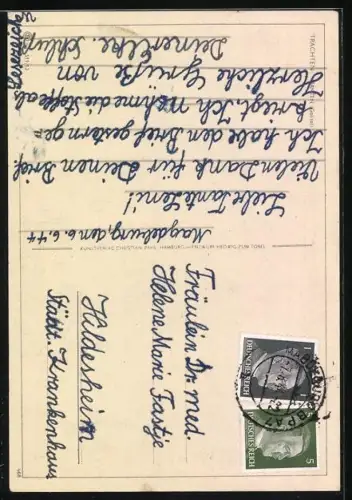 Magdeburg, den 6.6.44
Liebe Tante Leni!
Vielen Dank für Deinen Brief
Ich habe den Brief gestern ge=
kriegt. Ich nehme die
Herzliche Grüße von
Deiner Elke. Schluß
Fräulein Dr. med.
Helene Marie Fastje
Hildesheim
Städt. Krankenhaus
KUNSTVERLAG CHRISTIAN
HAMBURG
TRACHTEN
DEUTSCHES REICH
1
DEUTSCHES REICH
5